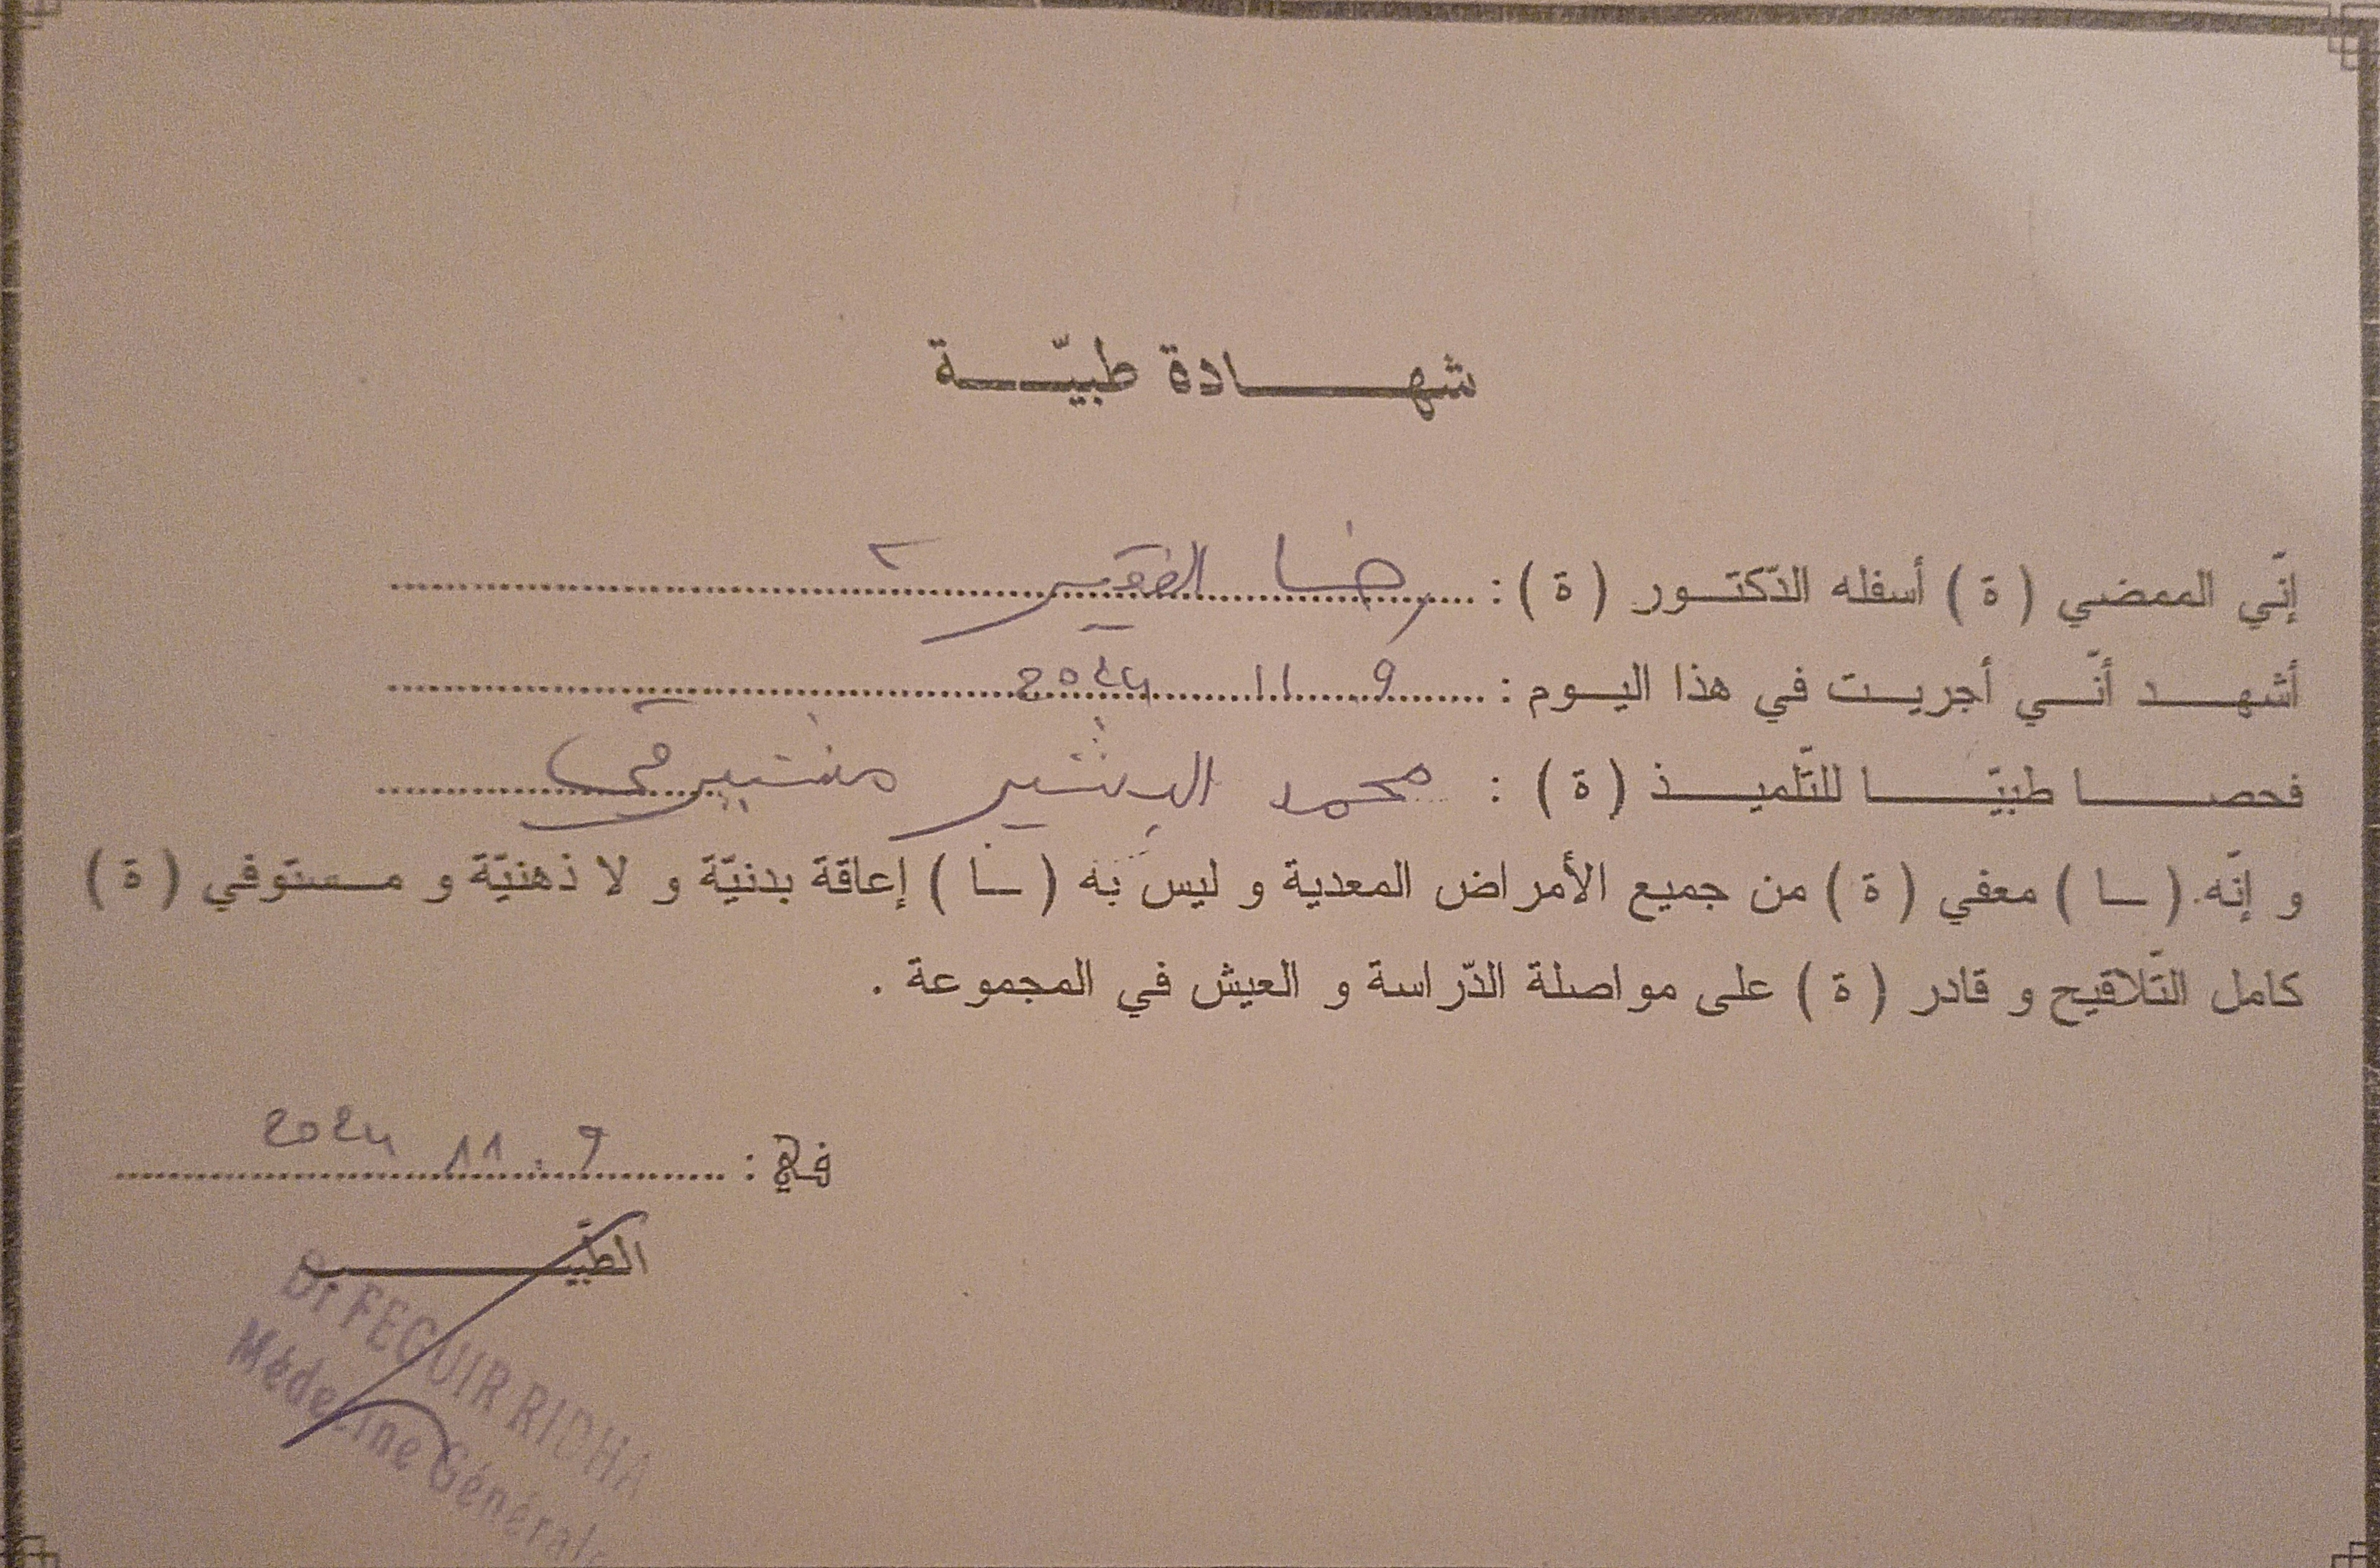 شهادة طبيّة
إنّي الممضي (ة) أسفله الدّكتور (ة) : رضا الفقير
أشهد أنّي أجريت في هذا اليوم : 9 11 2024
فحصا طبيّا للتّلميذ (ة) : محمد البشير
و إنّه (ـا) معفي (ة) من جميع الأمراض المعدية و ليس به (ـا) إعاقة بدنيّة و لا ذهنيّة و مستوفي (ة)
كامل التّلاقيح و قادر (ة) على مواصلة الدّراسة و العيش في المجموعة .
في : 9 . 11 2024
الطبيب
Dr FEGUIR RIDHA
Médecine Générale